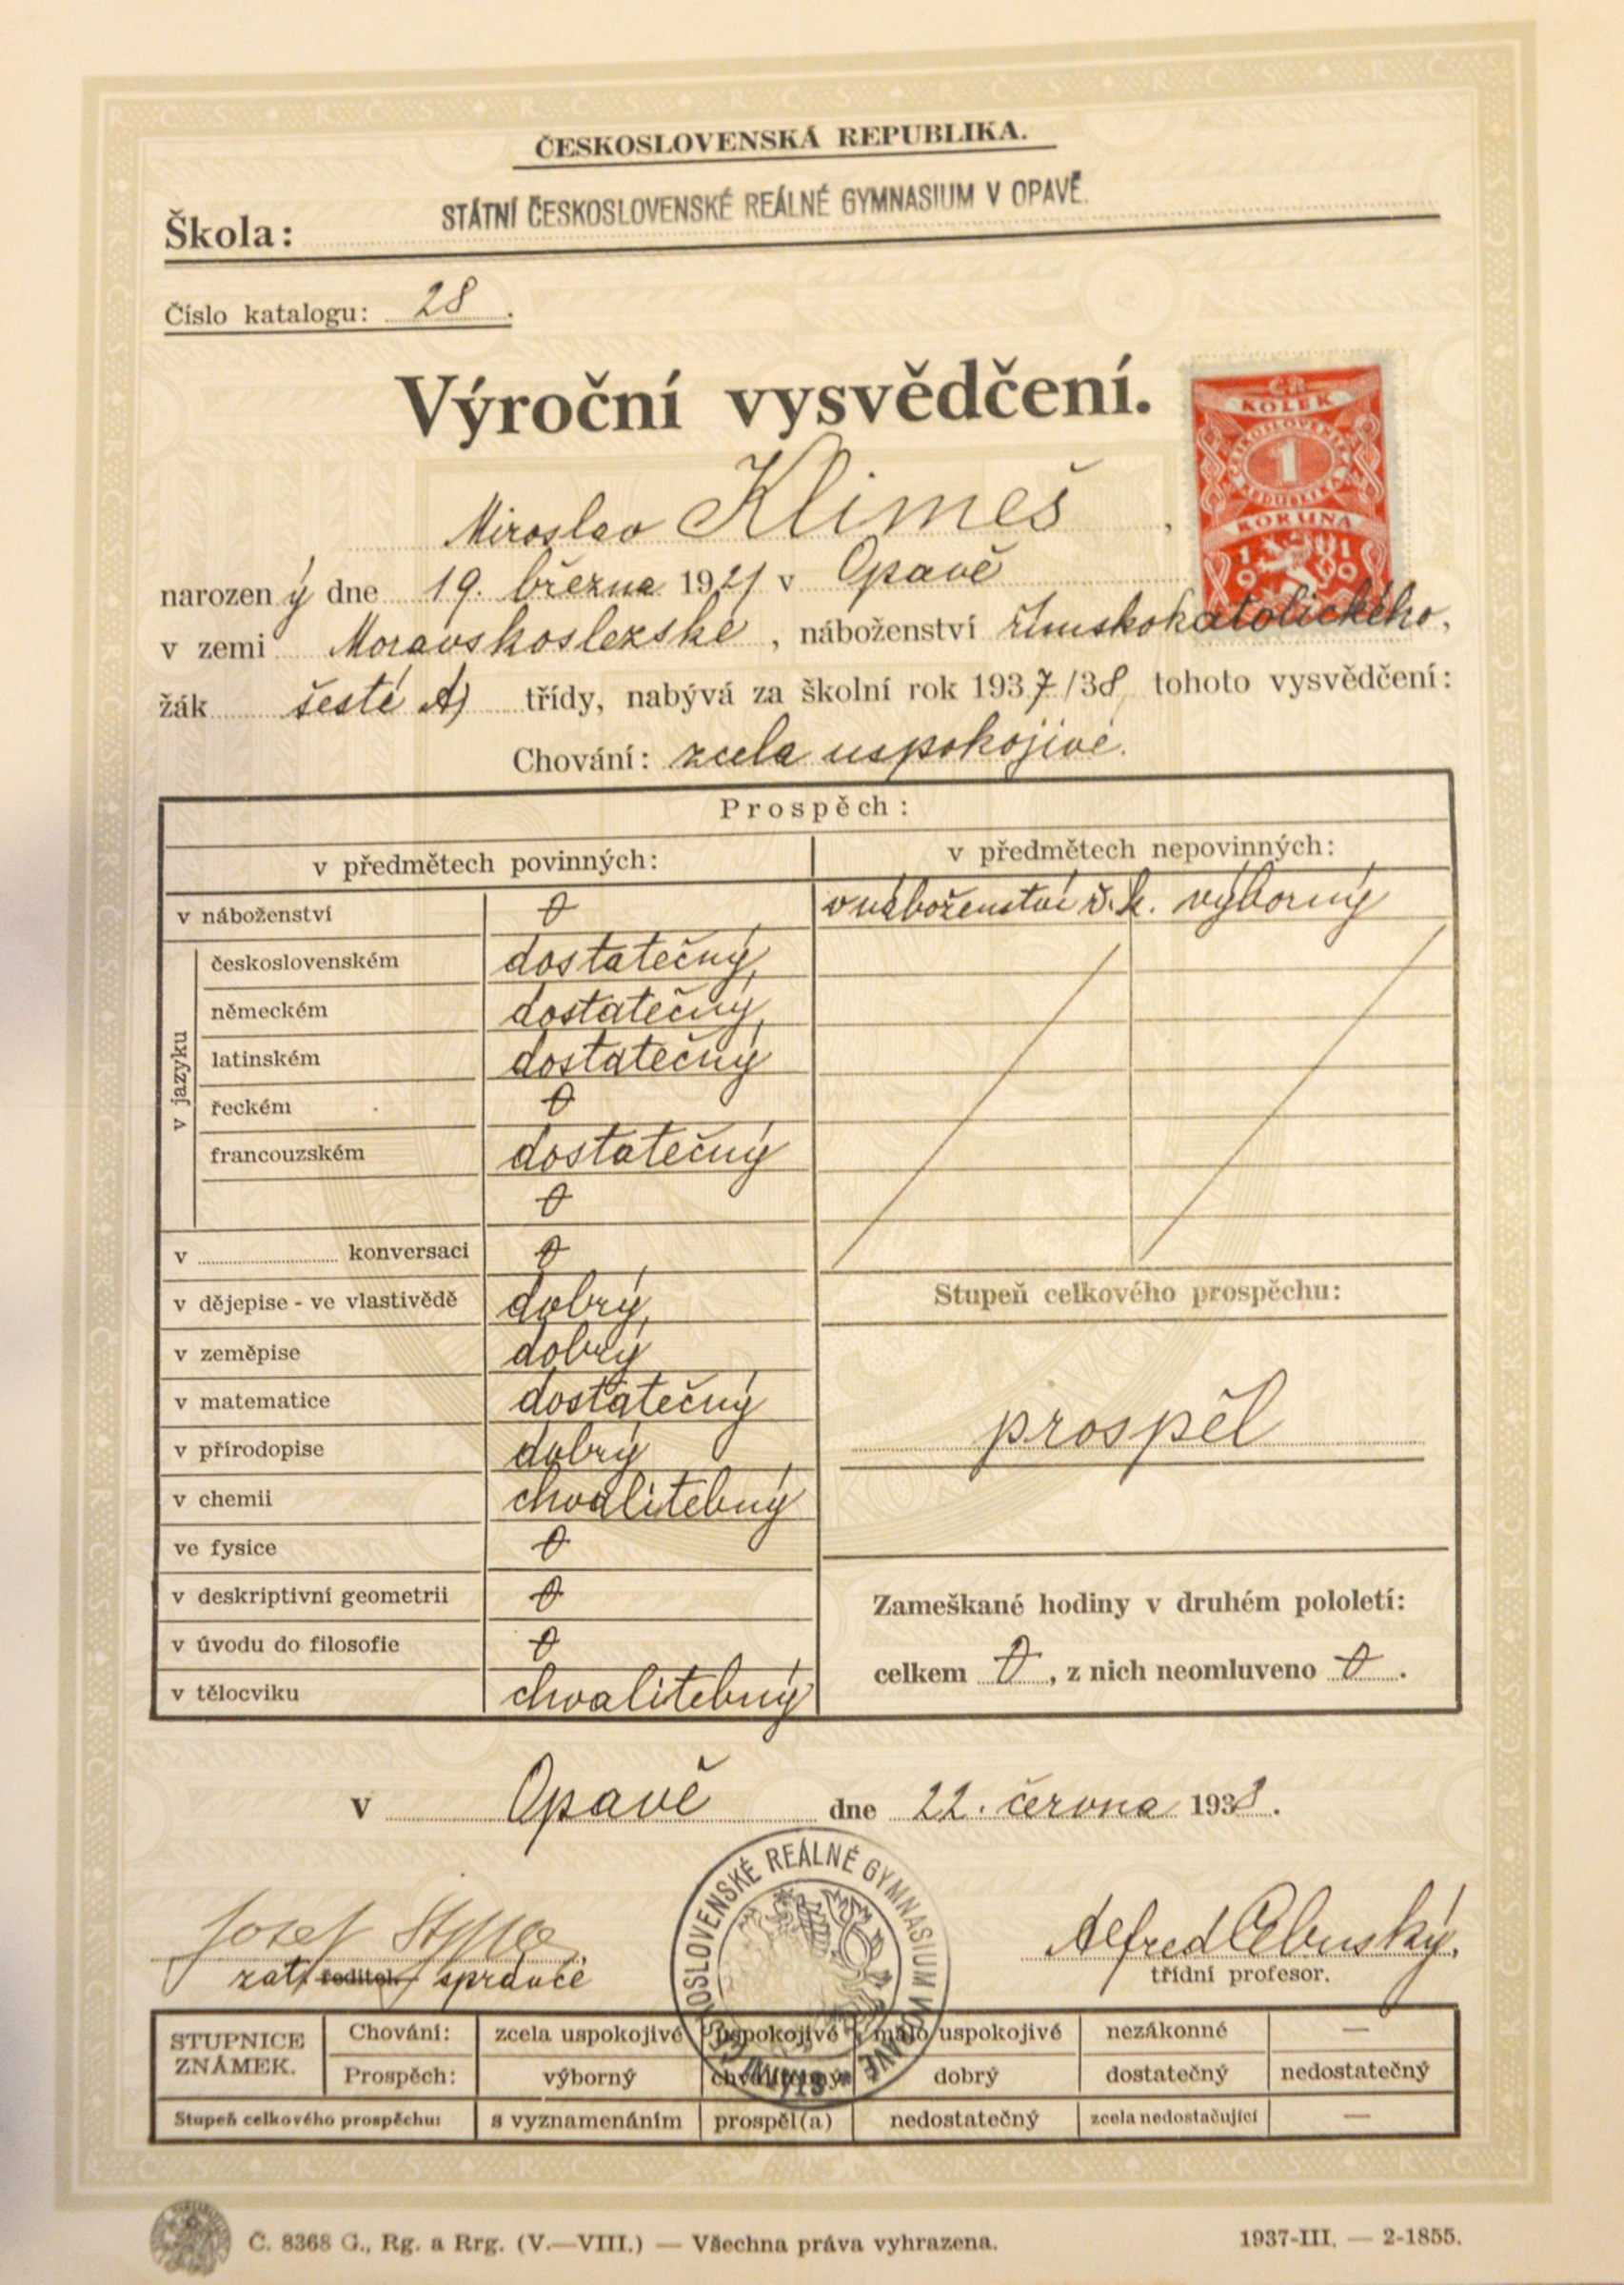 ČESKOSLOVENSKÁ REPUBLIKA.
Škola: STÁTNÍ ČESKOSLOVENSKÉ REÁLNÉ GYMNASIUM V OPAVĚ.
Číslo katalogu: 28.
Výroční vysvědčení.
ČR
KOLEK
ČESKOSLOVENSKÁ
1
REPUBLIKA
KORUNA
1919
Miroslav Klimeš,
narozený dne 19. března 1921 v Opavě
v zemi Moravskoslezské, náboženství římskokatolického,
žák šesté A) třídy, nabývá za školní rok 1937/38 tohoto vysvědčení:
Chování: zcela uspokojivé.
Prospěch:
v předmětech povinných:
v předmětech nepovinných:
v náboženství 0
v náboženství ř. k. výborný
v jazyku
československém dostatečný
německém dostatečný
latinském dostatečný
řeckém 0
francouzském dostatečný
0
v konversaci 0
v dějepise - ve vlastivědě dobrý
v zeměpise dobrý
v matematice dostatečný
v přírodopise dobrý
v chemii chvalitebný
ve fysice 0
v deskriptivní geometrii 0
v úvodu do filosofie 0
v tělocviku chvalitebný
Stupeň celkového prospěchu:
prospěl
Zameškané hodiny v druhém pololetí:
celkem 0, z nich neomluveno 0.
v Opavě dne 22. června 1938.
Josef
zat. ředitel správce
STÁTNÍ ČESKOSLOVENSKÉ REÁLNÉ GYMNASIUM V OPAVĚ
Alfred
třídní profesor.
STUPNICE ZNÁMEK.
Chování: zcela uspokojivé uspokojivé málo uspokojivé nezákonné —
Prospěch: výborný chvalitebný dobrý dostatečný nedostatečný
Stupeň celkového prospěchu: s vyznamenáním prospěl(a) nedostatečný zcela nedostačující —
Č. 8368 G., Rg. a Rrg. (V.—VIII.) — Všechna práva vyhrazena.
1937-III. — 2-1855.